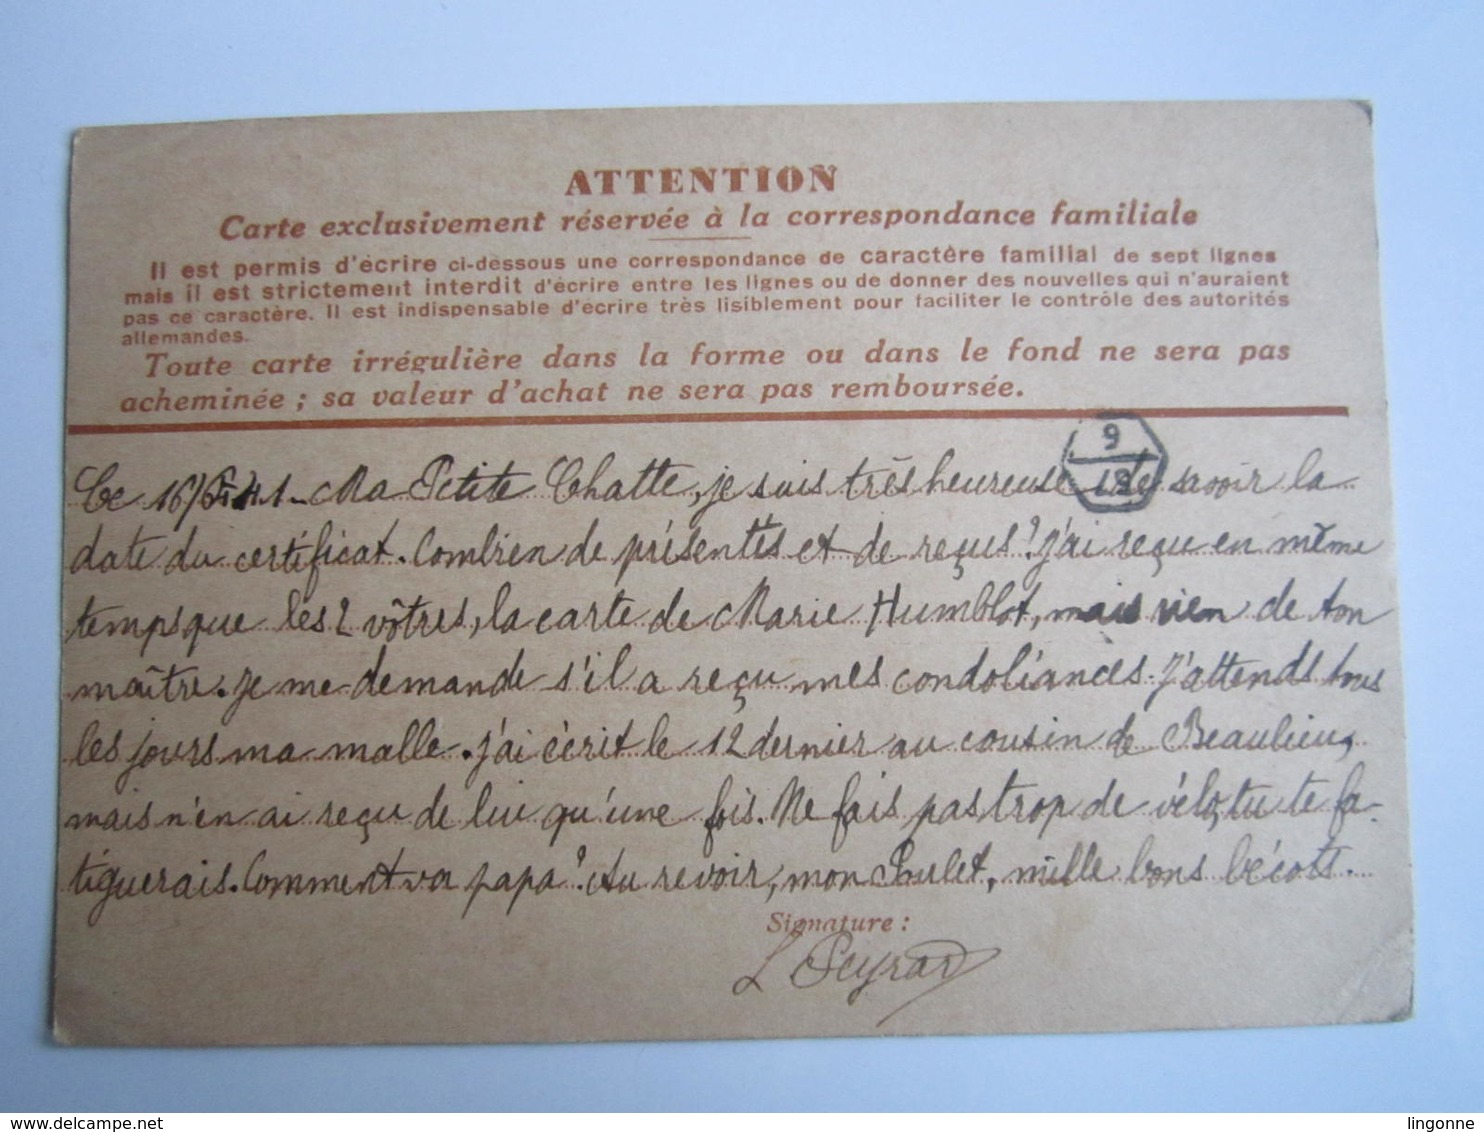 ATTENTION
Carte exclusivement réservée à la correspondance familiale
Il est permis d'écrire ci-dessous une correspondance de caractère familial de sept lignes
mais il est strictement interdit d'écrire entre les lignes ou de donner des nouvelles qui n'auraient
pas ce caractère. Il est indispensable d'écrire très lisiblement pour faciliter le contrôle des autorités
allemandes.
Toute carte irrégulière dans la forme ou dans le fond ne sera pas
acheminée ; sa valeur d'achat ne sera pas remboursée.
9
Ce 16/6/41 - Ma Petite Chatte, je suis très heureuse de savoir la
date du certificat. Combien de présentés et de reçus? J'ai reçu en même
temps que les 2 vôtres, la carte de Marie Humblot, mais rien de ton
maître. Je me demande s'il a reçu mes condoliances. J'attends tous
les jours ma malle. J'ai écrit le 12 dernier au cousin de Beaulieu,
mais n'en ai reçu de lui qu'une fois. Ne fais pas trop de vélo, tu te fa-
tiguerais. Comment va papa? Au revoir, mon Poulet, mille bons bécots.
Signature :
L Peyrard
delcampe.net
lingonne